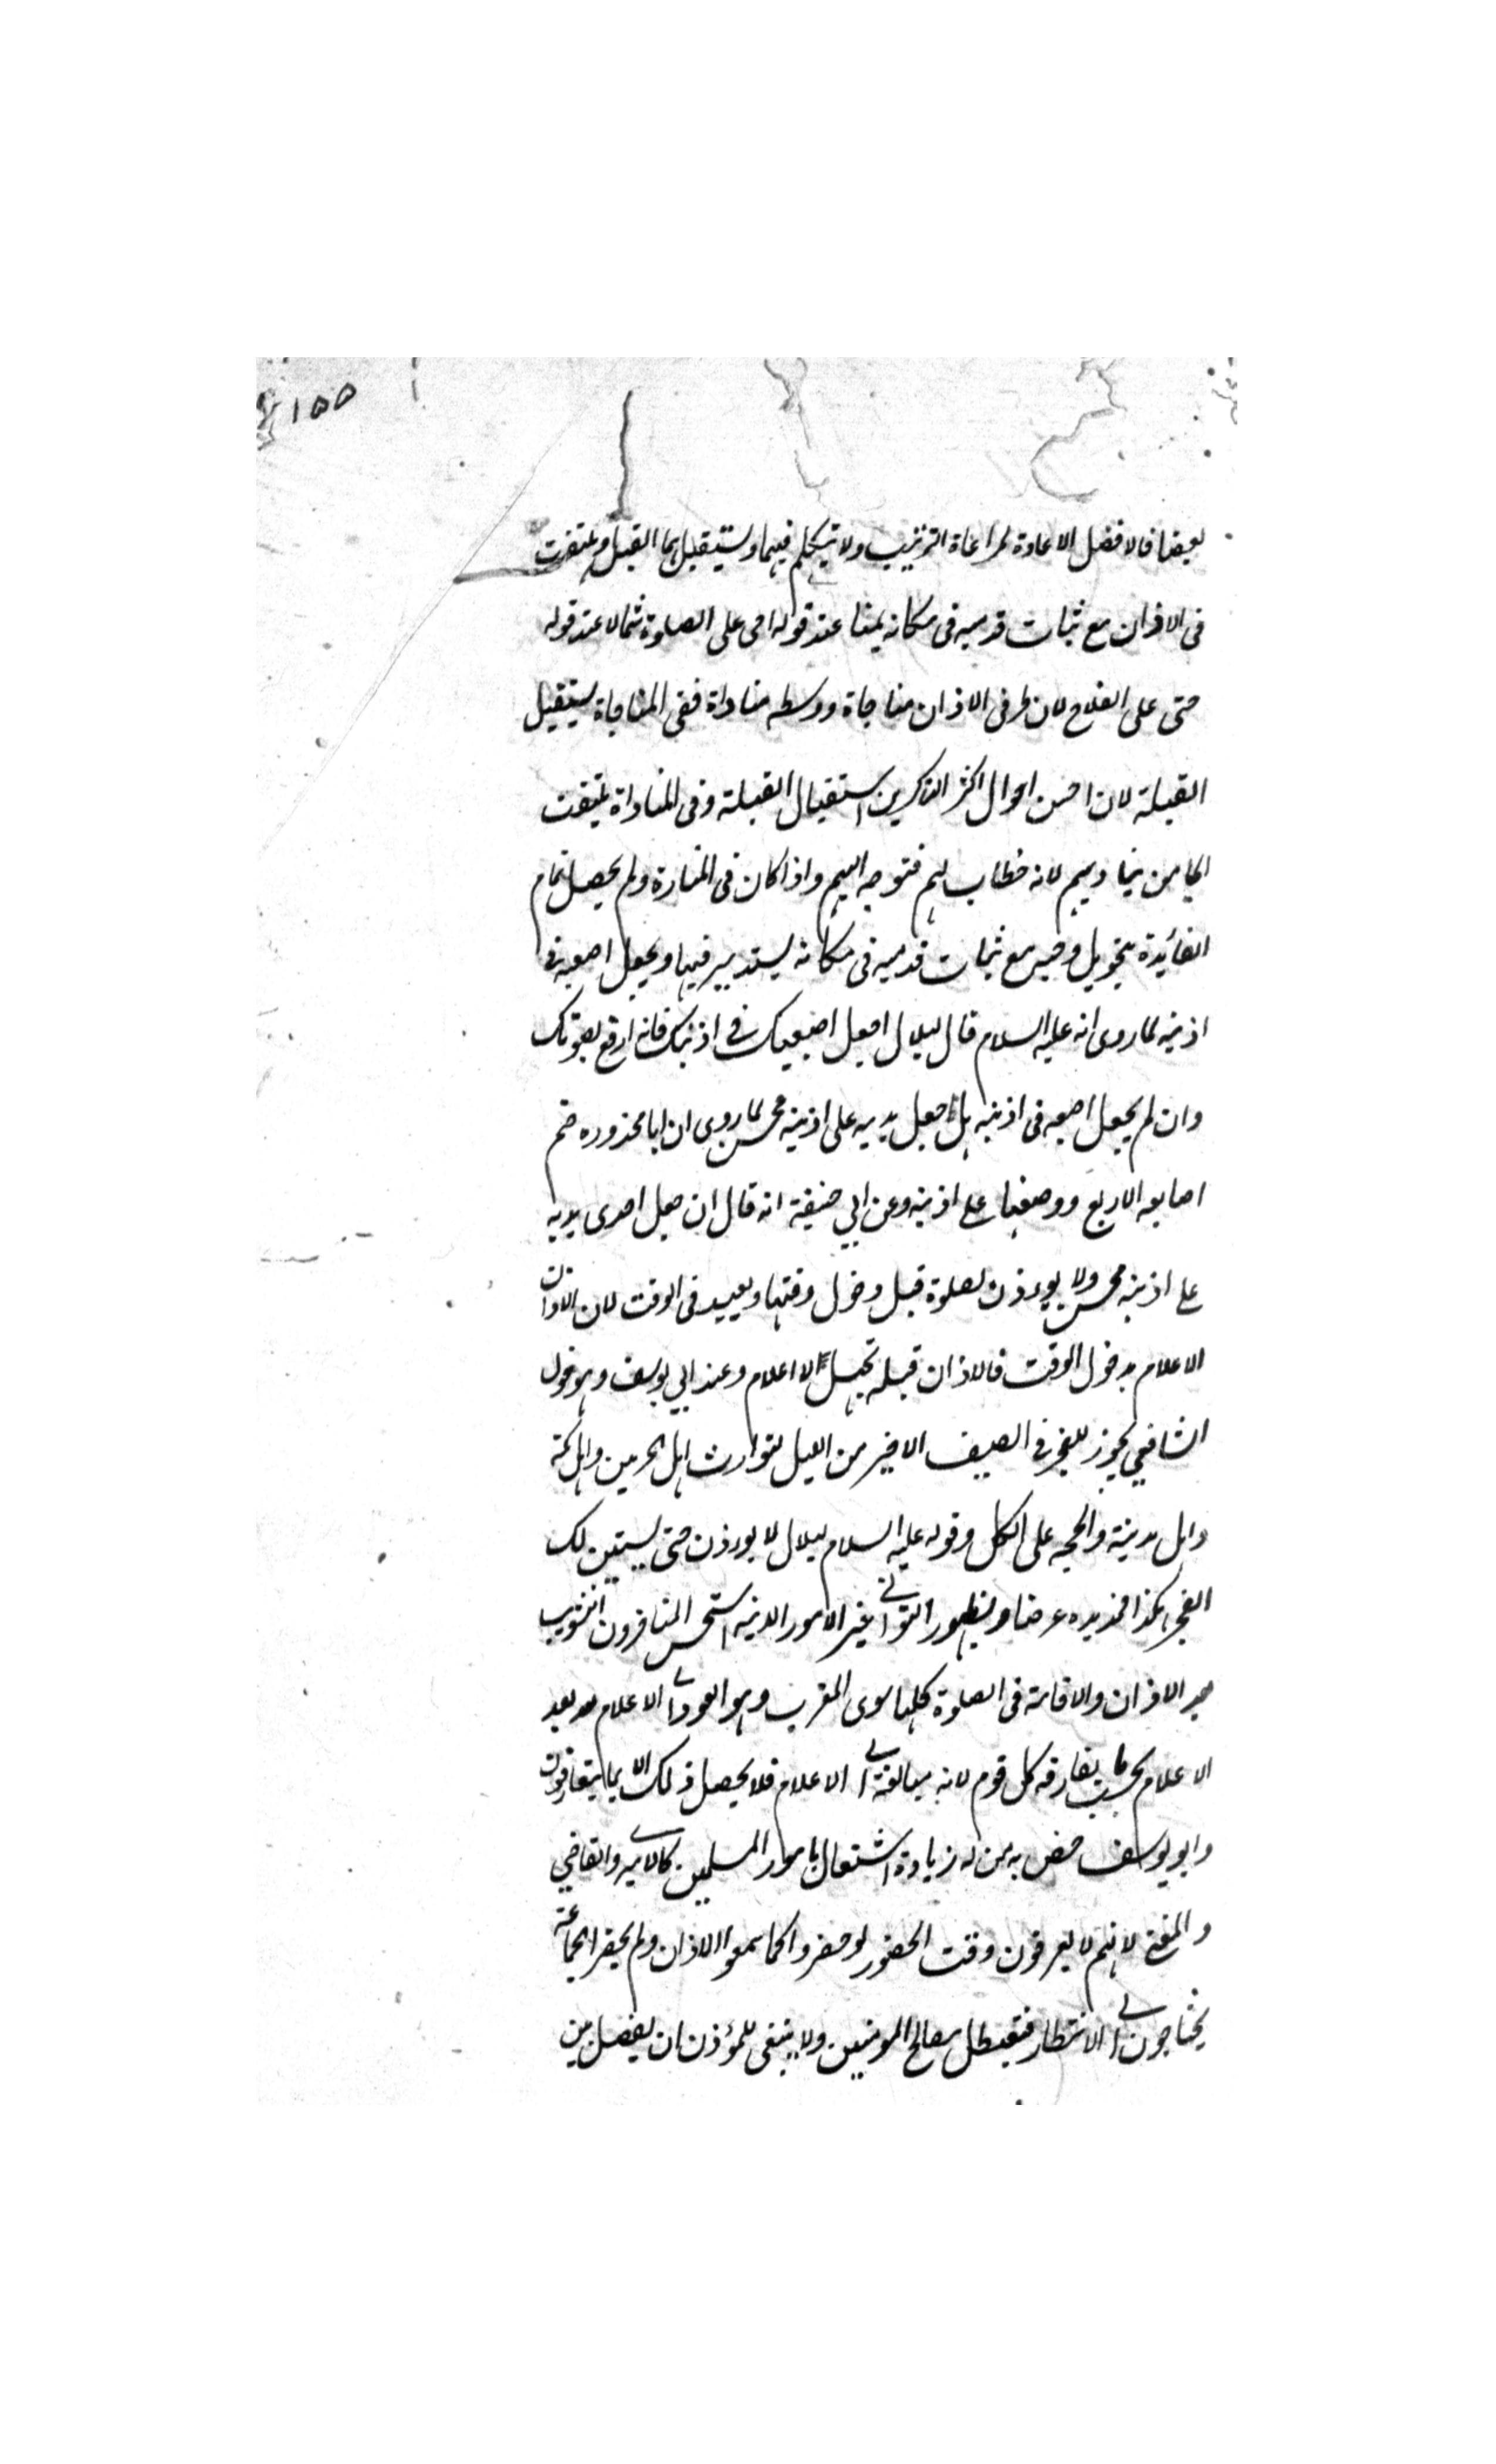 ١٥٥
بعضا فالافضل الاعادة لمراعاة الترتيب ولا يتكلم فيهما ويستقبل بهما القبلة ويلتفت
فى الاذان مع ثبات قدميه فى مكانه يمينا عند قوله حى على الصلوة شمالا عند قوله
حى على الفلاح لان طرفى الاذان مناجاة ووسطه مناداة ففى المناجاة يستقبل
القبلة لان احسن احوال اكثر الذاكرين استقبال القبلة وفى المناداة يلتفت
الى من يناديهم لانه خطاب لهم فتوجه اليهم واذا كان فى المنارة ولم يحصل تمام
الفائدة بتحويل وجهه مع ثبات قدميه فى مكانه يستدير فيها ويجعل اصبعيه فى
اذنيه لما روى انه عليه السلام قال لبلال اجعل اصبعيك فى اذنيك فانه ارفع لصوتك
وان لم يجعل اصبعيه فى اذنيه بل جعل يديه على اذنيه فحسن لما روى ان ابا محذوره ضم
اصابعه الاربع ووضعها على اذنيه وعن ابي حنيفة انه قال ان جعل احدى يديه
على اذنيه فحسن ولا يوءذن لصلوة قبل دخول وقتها ويعيد فى الوقت لان الاذان
الاعلام بدخول الوقت فالاذان قبله تجهيل لا اعلام وعند ابي يوسف وهو قول
الشافعي يجوز للفجر فى النصف الاخير من الليل لتوارث اهل الحرمين واهل مكة
واهل مدينة والحجه على الكل وقوله عليه السلام لبلال لا يوءذن حتى يستبين لك
الفجر هكذا فمد يده عرضا ولظهور التوانى فى غير الامور الدينيه استحسن المتاخرون التثويب
بين الاذان والاقامة فى الصلوة كلها سوى المغرب وهو العود الى الاعلام بعد
الاعلام بحسب ما يعارفه كل قوم لانه مبالغة فى الاعلام فلا يحصل ذلك الا بما يتعارفون
وابو يوسف خص به من له زيادة اشتغال بامور المسلمين كالامير والقاضي
والمفتى لانهم لا يعرفون وقت الحضور لو حضروا كما سمعوا الاذان ولم يحضر الجماعة
يحتاجون الى الانتظار فتعطل مصالح المومنين ولا ينبغى للمؤذن ان يفصل بين